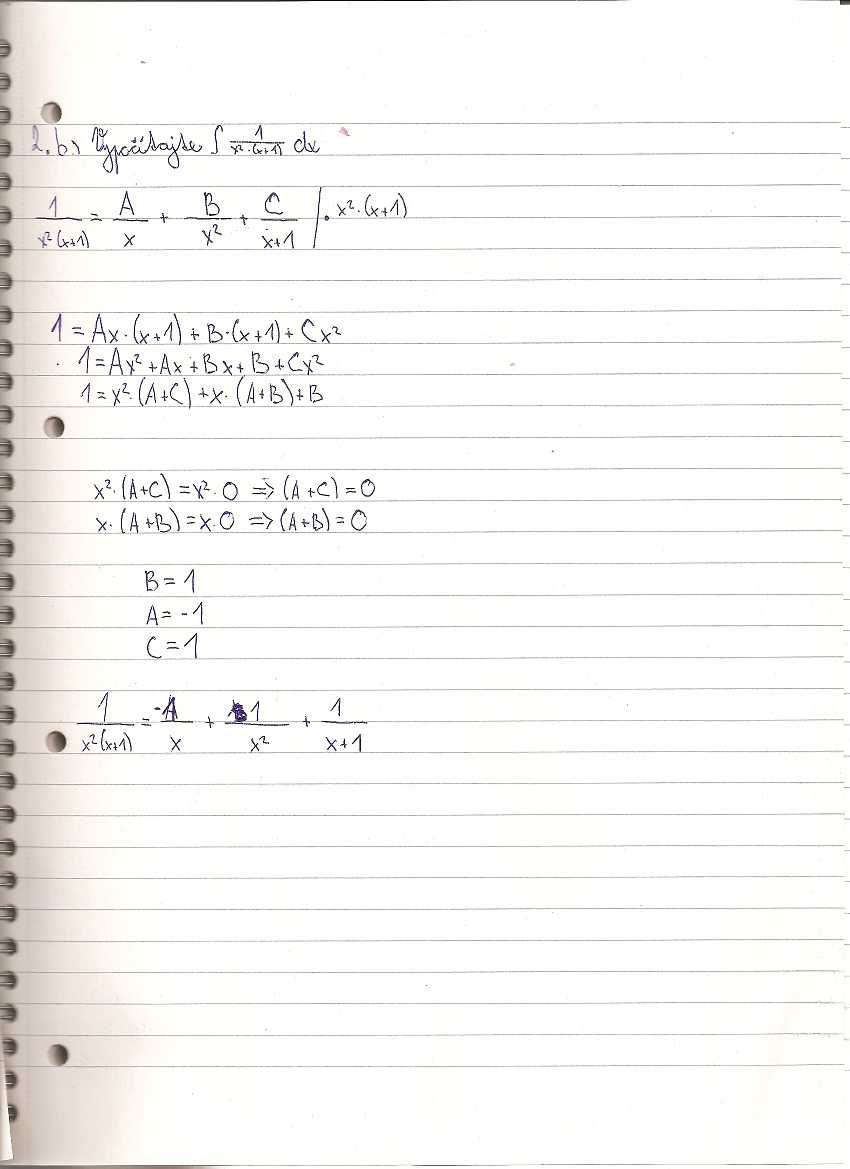 2.b) Vypočítajte ∫ 1/(x²·(x+1)) dx
1/(x²(x+1)) = A/x + B/x² + C/(x+1) |·x²·(x+1)
1 = Ax·(x+1) + B·(x+1) + Cx²
1 = Ax² + Ax + Bx + B + Cx²
1 = x²·(A+C) + x·(A+B) + B
x²·(A+C) = x²·0 => (A+C) = 0
x·(A+B) = x·0 => (A+B) = 0
B = 1
A = -1
C = 1
1/(x²(x+1)) = -1/x + 1/x² + 1/(x+1)